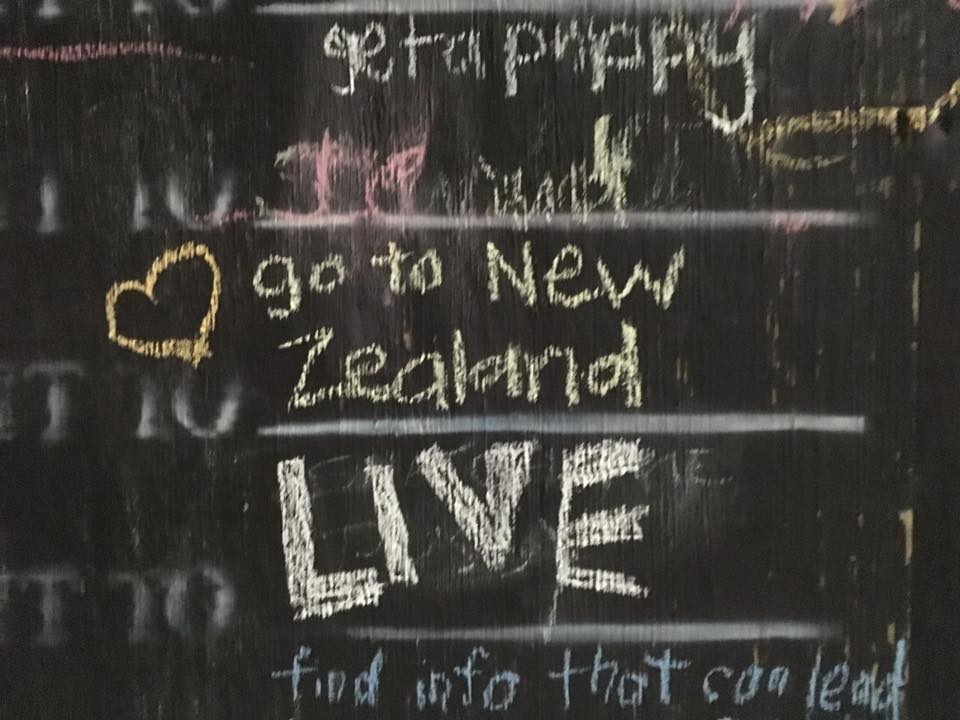 get a puppy
T TO
go to New
Zealand
T TO
LIVE
T TO
find info that can lead